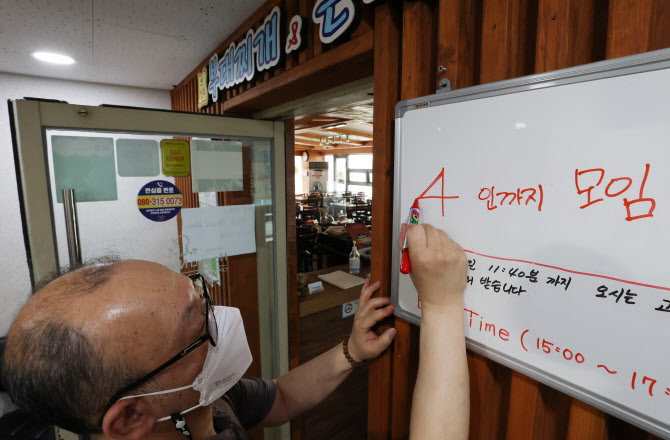 부대찌개
안심콜 번호
080-315 0073
4 인까지 모임
11:40분 까지 오시는
받습니다
Time ( 15:00 ~ 17